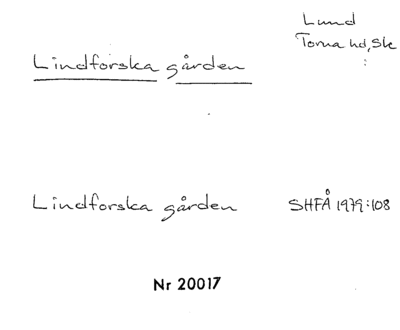 Lund
Torna hd, Sk
Lindforska gården
Lindforska gården SHFÅ 1979:108
Nr 20017